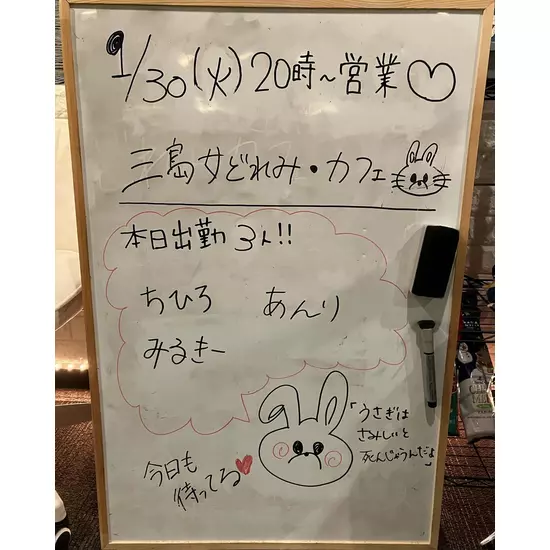 1/30(火)20時~営業♡
三島女どれみ・カフェ
本日出勤3人!!
ちひろ あんり
みるきー
「うさぎは
さみしいと
死んじゃうんだよ」
今日も
待ってる♥